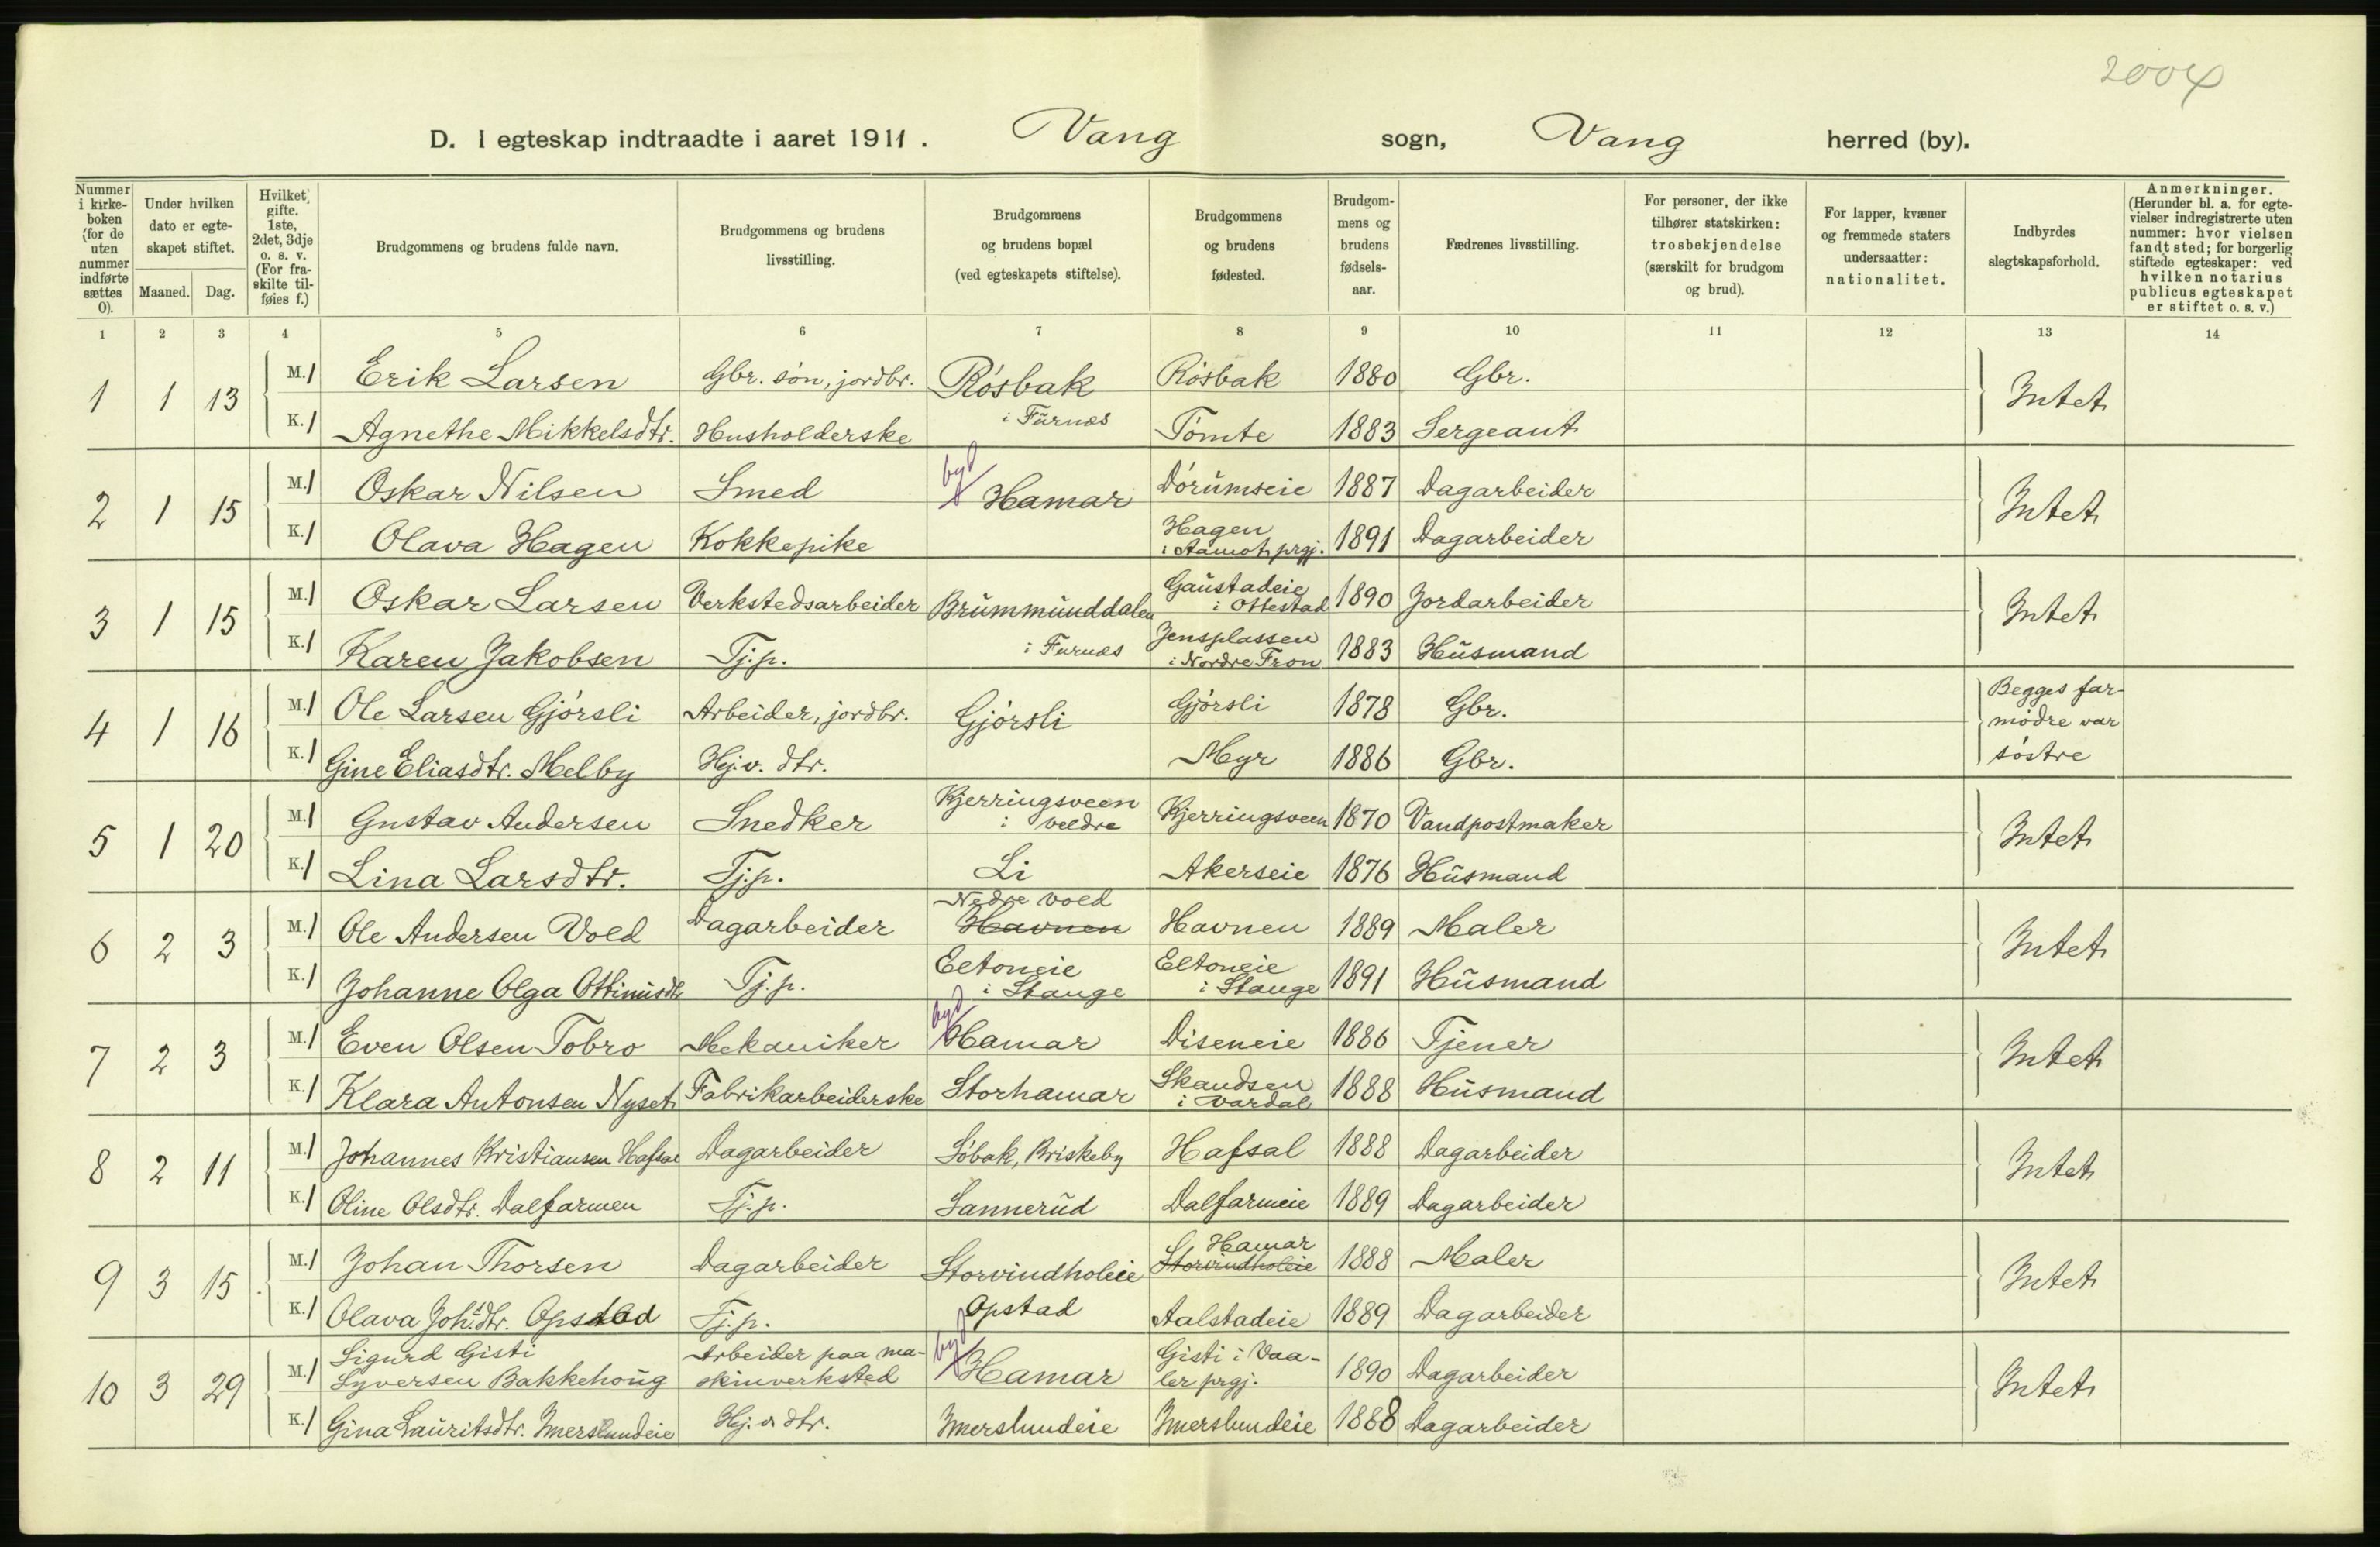 2004
D. I egteskap indtraadte i aaret 1911. Vang sogn, Vang herred (by).
Nummer i kirke-boken (for de uten nummer indførte sættes 0).
Under hvilken dato er egte-skapet stiftet.
Maaned. Dag.
Hvilket gifte. 1ste, 2det, 3dje o. s. v. (For fra-skilte til-føies f.)
Brudgommens og brudens fulde navn.
Brudgommens og brudens livsstilling.
Brudgommens og brudens bopæl (ved egteskapets stiftelse).
Brudgommens og brudens fødested.
Brudgom-mens og brudens fødsels-aar.
Fædrenes livsstilling.
For personer, der ikke tilhører statskirken: trosbekjendelse (særskilt for brudgom og brud).
For lapper, kvæner og fremmede staters undersaatter: nationalitet.
Indbyrdes slegtskapsforhold.
Anmerkninger. (Herunder bl. a. for egte-vielser indregistrerte uten nummer: hvor vielsen fandt sted; for borgerlig stiftede egteskaper: ved hvilken notarius publicus egteskapet er stiftet o. s. v.)
1 2 3 4 5 6 7 8 9 10 11 12 13 14
1 1 13 M. 1 Erik Larsen Gbr. søn, jordbr. Røsbak i Furnes Røsbak 1880 Gbr. Intet
K. 1 Agnethe Mikkelsdtr. Husholderske Tomte 1883 Sergeant
2 1 15 M. 1 Oskar Nilsen Smed byd Hamar Dørumseie 1887 Dagarbeider Intet
K. 1 Olava Hagen Kokkepike Hagen i Aamot prgj. 1891 Dagarbeider
3 1 15 M. 1 Oskar Larsen Verkstedsarbeider Brummunddalen i Furnes Gaustadeie i Ottestad 1890 Jordarbeider Intet
K. 1 Karen Jakobsen Tj.p. Jensplassen i Nordre Fron 1883 Husmand
4 1 16 M. 1 Ole Larsen Gjørsli Arbeider, jordbr. Gjørsli Gjørsli 1878 Gbr. Begges far-mødre var søstre
K. 1 Gine Eliasdtr. Melby Hj.v. dtr. Myr 1886 Gbr.
5 1 20 M. 1 Gustav Andersen Snedker Kjerringsveen i Veldre Kjerringsveen 1870 Vandpostmaker Intet
K. 1 Lina Larsdtr. Tj.p. Li Akerseie 1876 Husmand
6 2 3 M. 1 Ole Andersen Vold Dagarbeider Nedre Vold Havnen Havnen 1889 Maler Intet
K. 1 Johanne Olga Ottinusdtr Tj.p. Eltoneie i Stange Eltoneie i Stange 1891 Husmand
7 2 3 M. 1 Even Olsen Tobro Mekaniker byd Hamar Diseneie 1886 Tjener Intet
K. 1 Klara Antonsen Nyset Fabrikarbeiderske Storhamar Skandsen i Vardal 1888 Husmand
8 2 11 M. 1 Johannes Kristiansen Hafsal Dagarbeider Søbak, Briskeby Hafsal 1888 Dagarbeider Intet
K. 1 Oline Olsdtr. Dalfarmen Tj.p. Sannerud Dalfarmeie 1889 Dagarbeider
9 3 15 M. 1 Johan Thorsen Dagarbeider Storvindholeie Hamar Storvindholeie 1888 Maler Intet
K. 1 Olava Joh.sdtr. Opstad Tj.p. Opstad Aalstadeie 1889 Dagarbeider
10 3 29 M. 1 Sigurd Gisti Syversen Bakkehoug Arbeider paa ma-skinverksted byd Hamar Gisti i Vaa-ler prgj. 1890 Dagarbeider Intet
K. 1 Gina Lauritsdtr. Imerslundeie Hj.v. dtr. Imerslundeie Imerslundeie 1888 Dagarbeider